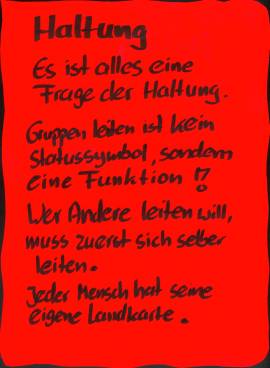 Haltung
Es ist alles eine
Frage der Haltung.
Gruppen leiten ist kein
Statussymbol, sondern
eine Funktion !?
Wer Andere leiten will,
muss zuerst sich selber
leiten.
Jeder Mensch hat seine
eigene Landkarte.